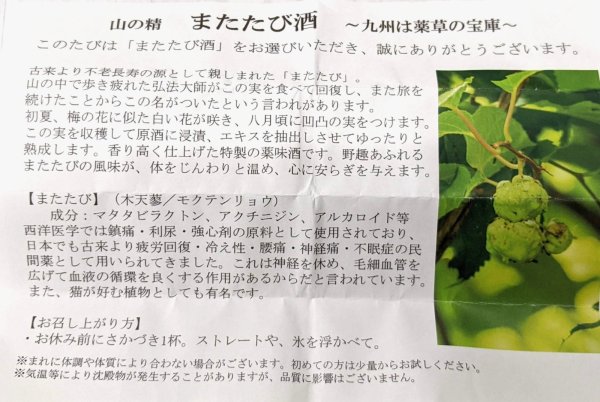 山の精　またたび酒　～九州は薬草の宝庫～
このたびは「またたび酒」をお選びいただき、誠にありがとうございます。
古来より不老長寿の源として親しまれた「またたび」。
山の中で歩き疲れた弘法大師がこの実を食べて回復し、また旅を
続けたことからこの名がついたという言われがあります。
初夏、梅の花に似た白い花が咲き、八月頃に凹凸の実をつけます。
この実を収穫して原酒に浸漬、エキスを抽出しさせてゆったりと
熟成します。香り高く仕上げた特製の薬味酒です。野趣あふれる
またたびの風味が、体をじんわりと温め、心に安らぎを与えます。
【またたび】（木天蓼／モクテンリョウ）
成分：マタタビラクトン、アクチニジン、アルカロイド等
西洋医学では鎮痛・利尿・強心剤の原料として使用されており、
日本でも古来より疲労回復・冷え性・腰痛・神経痛・不眠症の民
間薬として用いられてきました。これは神経を休め、毛細血管を
広げて血液の循環を良くする作用があるからだと言われています。
また、猫が好む植物としても有名です。
【お召し上がり方】
・お休み前にさかづき1杯。ストレートや、氷を浮かべて。
※まれに体調や体質により合わない場合がございます。初めての方は少量からお試しください。
※気温等により沈殿物が発生することがありますが、品質に影響はございません。